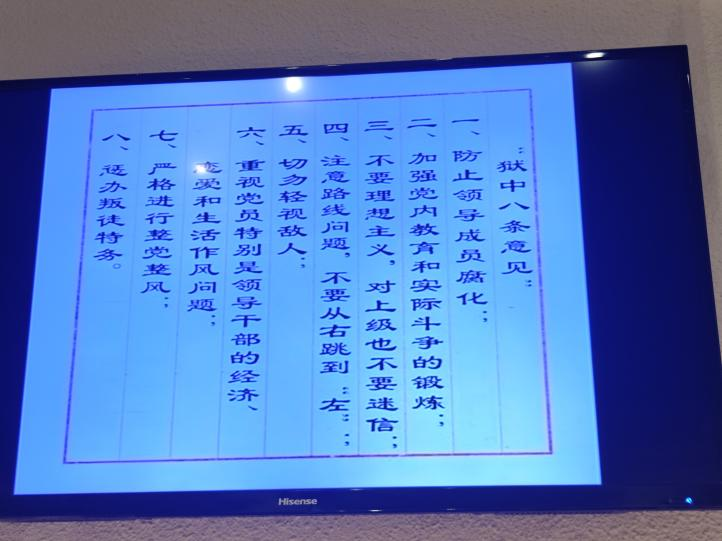 “狱中八条意见”：
一、防止领导成员腐化；
二、加强党内教育和实际斗争的锻炼；
三、不要理想主义，对上级也不要迷信；
四、注意路线问题，不要从右跳到“左”；
五、切勿轻视敌人；
六、重视党员特别是领导干部的经济、
恋爱和生活作风问题；
七、严格进行整党整风；
八、惩办叛徒特务。
Hisense